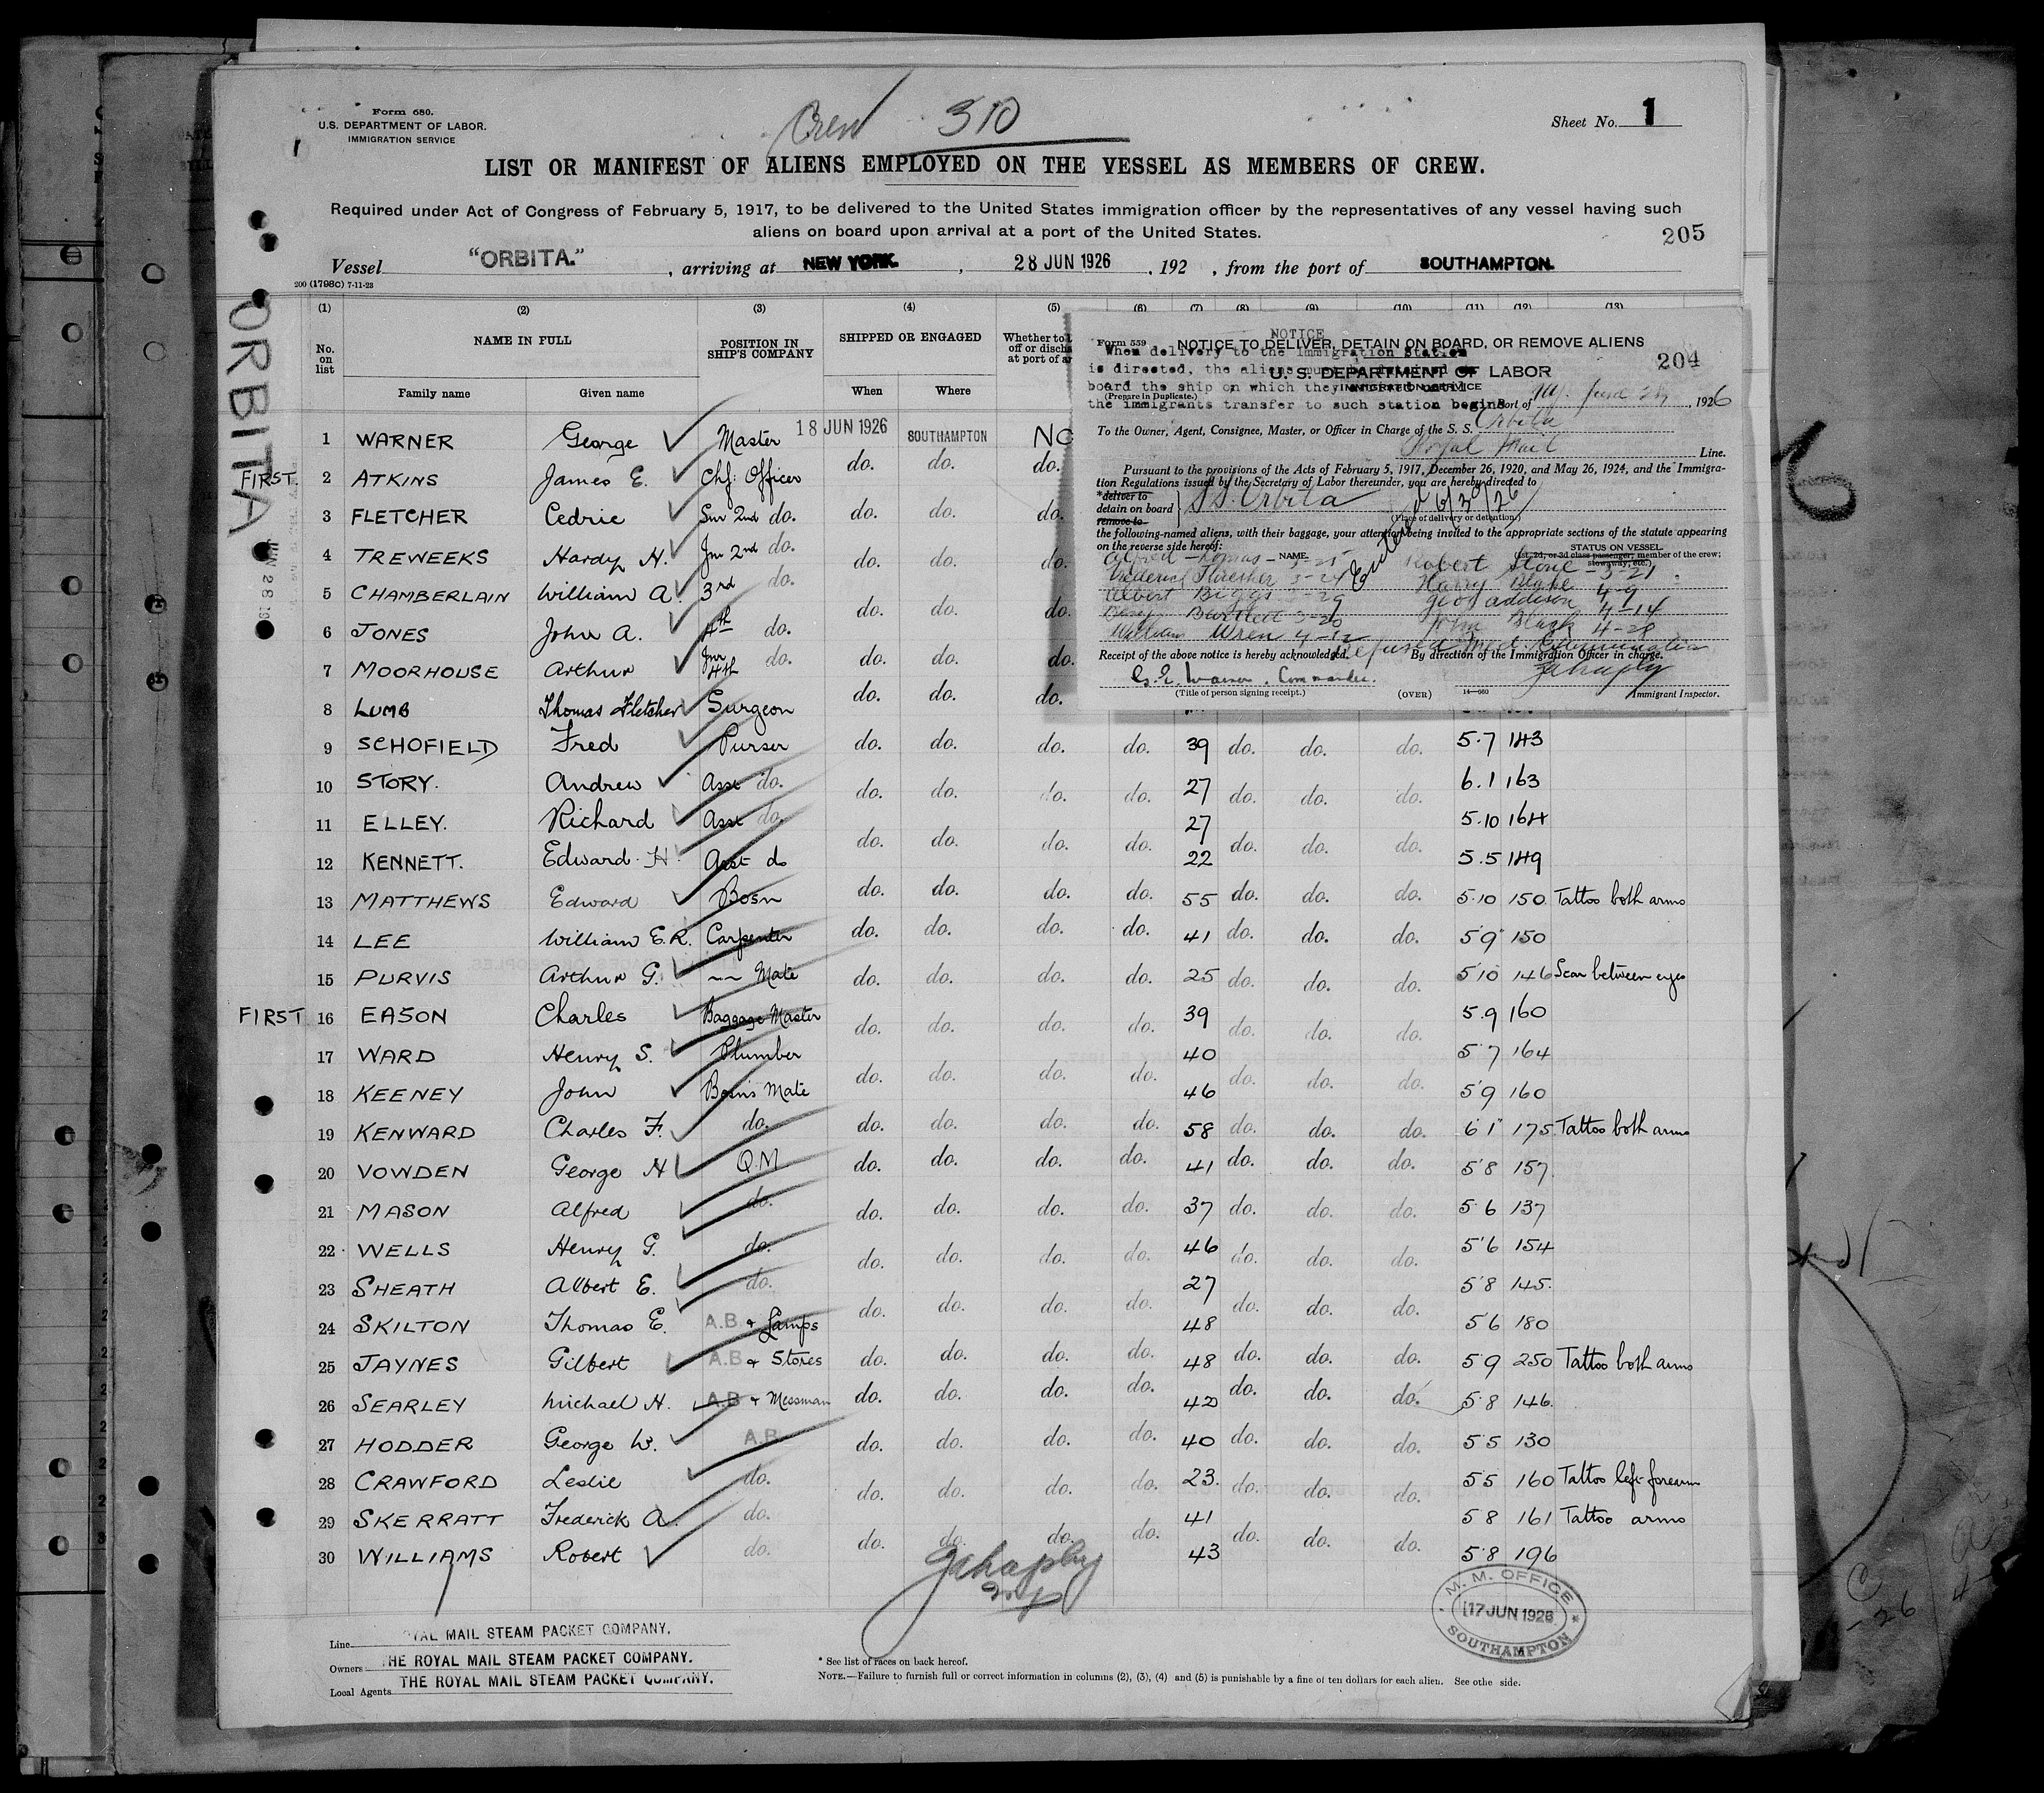 Form 680.
U.S. DEPARTMENT OF LABOR.
IMMIGRATION SERVICE
Crew 310
Sheet No. 1
LIST OR MANIFEST OF ALIENS EMPLOYED ON THE VESSEL AS MEMBERS OF CREW.
Required under Act of Congress of February 5, 1917, to be delivered to the United States immigration officer by the representatives of any vessel having such
aliens on board upon arrival at a port of the United States.
205
Vessel "ORBITA.", arriving at NEW YORK., 28 JUN 1926, 192 , from the port of SOUTHAMPTON.
200 (1798C) 7-11-23
ORBITA
(1) (2) (3) (4) (5) (6) (7) (8) (9) (10) (11) (12) (13)
No. on list
NAME IN FULL
Family name Given name
POSITION IN SHIP'S COMPANY
SHIPPED OR ENGAGED
When Where
Form 559
NOTICE
NOTICE TO DELIVER, DETAIN ON BOARD, OR REMOVE ALIENS
204
When delivery to the Immigration Station
is directed, the aliens must
board the ship on which they
the immigrants transfer to such station begins
U. S. DEPARTMENT OF LABOR
IMMIGRATION SERVICE
(Prepare in Duplicate.)
Port of N.Y. June 29, 1926
To the Owner, Agent, Consignee, Master, or Officer in Charge of the S. S. Orbita
Royal Mail Line.
Pursuant to the provisions of the Acts of February 5, 1917, December 26, 1920, and May 26, 1924, and the Immigra-
tion Regulations issued by the Secretary of Labor thereunder, you are hereby directed to
*deliver to
detain on board
remove to
SS. Orbita
(Place of delivery or detention.)
the following-named aliens, with their baggage, your attention being invited to the appropriate sections of the statute appearing
on the reverse side hereof:
NAME. STATUS ON VESSEL.
(1st, 2d, or 3d class passenger; member of the crew; stowaway, etc.)
Alfred Robert Stone 3-21
Frederick Thresher 3-24 Harry Blake 4-9
Albert Biggs 3-29 Geo Addison 4-14
Bartlett John Black 4-28
William Wren 4-12
Refused Med. Examination
Receipt of the above notice is hereby acknowledged. By direction of the Immigration Officer in charge.
G. E. Warner, Commander.
(Title of person signing receipt.) (OVER) 14—680 Immigrant Inspector.
1 WARNER George Master 18 JUN 1926 SOUTHAMPTON NO
FIRST. 2 ATKINS James E. Chf: Officer do. do. do.
3 FLETCHER Cedric Snr 2nd do. do. do. do.
4 TREWEEKS Hardy H. Jnr 2nd do. do. do. do.
5 CHAMBERLAIN William A. 3rd do.
6 JONES John A. 4th do. do. do. do.
7 MOORHOUSE Arthur Jnr 4th do. do. do. do.
8 LUMB Thomas Fletcher Surgeon do. do. do.
9 SCHOFIELD Fred Purser do. do. do. do. 39 do. do. do. 5.7 143
10 STORY. Andrew Asst do. do. do. do. do. 27 do. do. do. 6.1 163
11 ELLEY. Richard Asst do. 27 5.10 164
12 KENNETT. Edward H. Asst do do. do. do. do. 22 do. do. do. 5.5 149
13 MATTHEWS Edward Bosn do. do. do. do. 55 do. do. do. 5.10 150 Tattoo both arms
14 LEE William E.R. Carpenter do. do. do. do. 41 do. do. do. 5 9 150
15 PURVIS Arthur G. ~~ Mate do. do. do. do. 25 do. do. do. 5 10 146 Scar between eyes
FIRST 16 EASON Charles Baggage Master do. do. do. do. 39 do. do. do. 5.9 160
17 WARD Henry S. Plumber 40 5 7 164
18 KEENEY John Bosns Mate do. do. do. do. 46 do. do. do. 5 9 160
19 KENWARD Charles F. do. do. do. do. do. 58 do. do. do. 6 1 175 Tattoo both arms
20 VOWDEN George H Q.M do. do. do. do. 41 do. do. do. 5 8 157
21 MASON Alfred do. do. do. do. do. 37 do. do. do. 5 6 137
22 WELLS Henry G. do. do. do. do. do. 46 do. do. do. 5 6 154
23 SHEATH Albert E. do. 27 5 8 145
24 SKILTON Thomas E. A.B. & Lamps do. do. do. do. 48 do. do. do. 5 6 180
25 JAYNES Gilbert A.B & Stores do. do. do. do. 48 do. do. do. 5 9 250 Tattoo both arms
26 SEARLEY Michael H. A.B & Messman do. do. do. do. 42 do. do. do. 5 8 146
27 HODDER George W. A.B do. do. do. do. 40 do. do. do. 5 5 130
28 CRAWFORD Leslie do. do. do. do. do. 23 do. do. do. 5 5 160 Tattoo left forearm
29 SKERRATT Frederick A. do. 41 5 8 161 Tattoo arms
30 WILLIAMS Robert do. do. do. do. do. 43 do. do. do. 5 8 196
M. M. OFFICE
17 JUN 1926
SOUTHAMPTON
Line ROYAL MAIL STEAM PACKET COMPANY.
Owners THE ROYAL MAIL STEAM PACKET COMPANY.
Local Agents THE ROYAL MAIL STEAM PACKET COMPANY.
* See list of races on back hereof.
NOTE.—Failure to furnish full or correct information in columns (2), (3), (4) and (5) is punishable by a fine of ten dollars for each alien. See othe side.